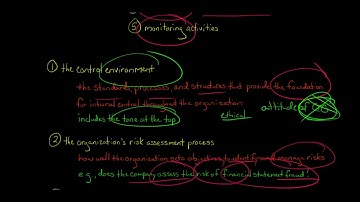 ⑤ monitoring activities
① the control environment
the standards, processes, and structures that provide the foundation
for internal control throughout the organization
ethical
attitude of
includes the tone at the top
② the organization's risk assessment process
how well the organization sets objectives to identify and manage risks
e.g., does the company assess the risk of financial statement fraud?